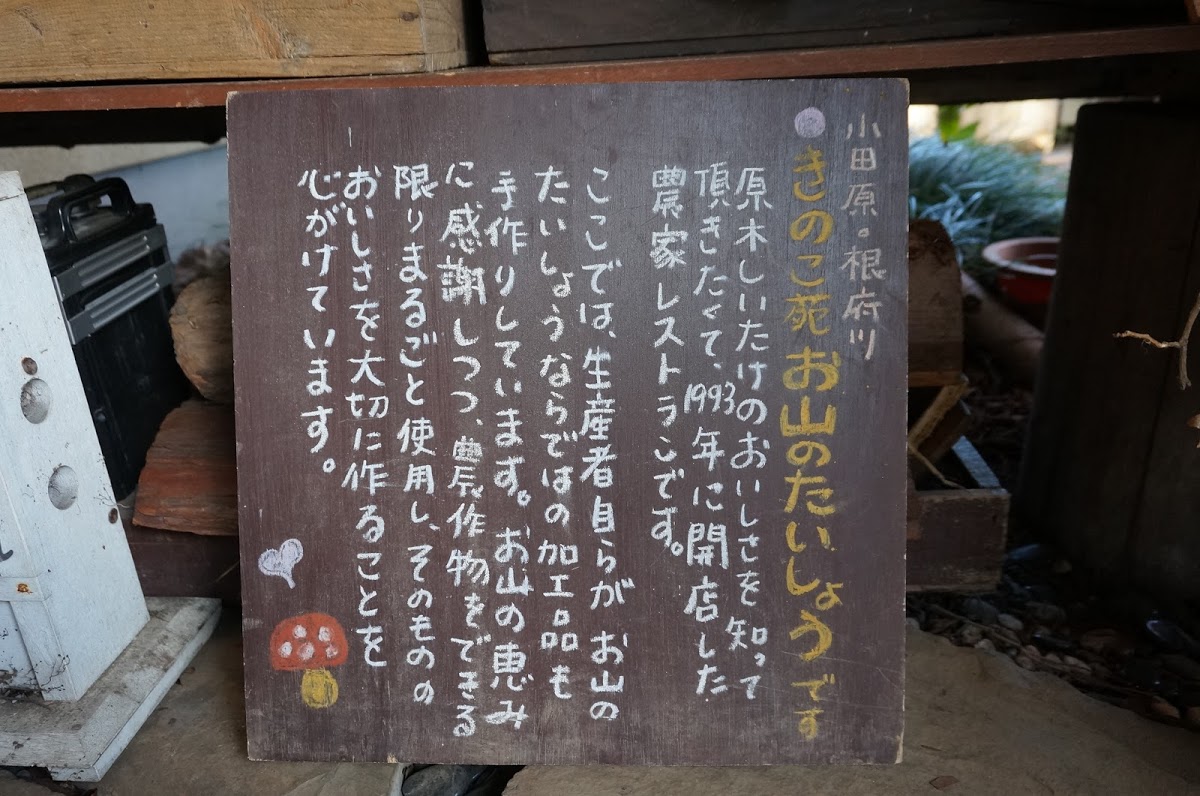 小田原。根府川
きのこ苑お山のたいしょうです
原木しいたけのおいしさを知って
頂きたくて、1993年に開店した
農家レストランです。
ここでは、生産者自らがお山の
たいしょうならではの加工品も
手作りしています。お山の恵み
に感謝しつつ、農作物をできる
限りまるごと使用し、そのものの
おいしさを大切に作ることを
心がけています。